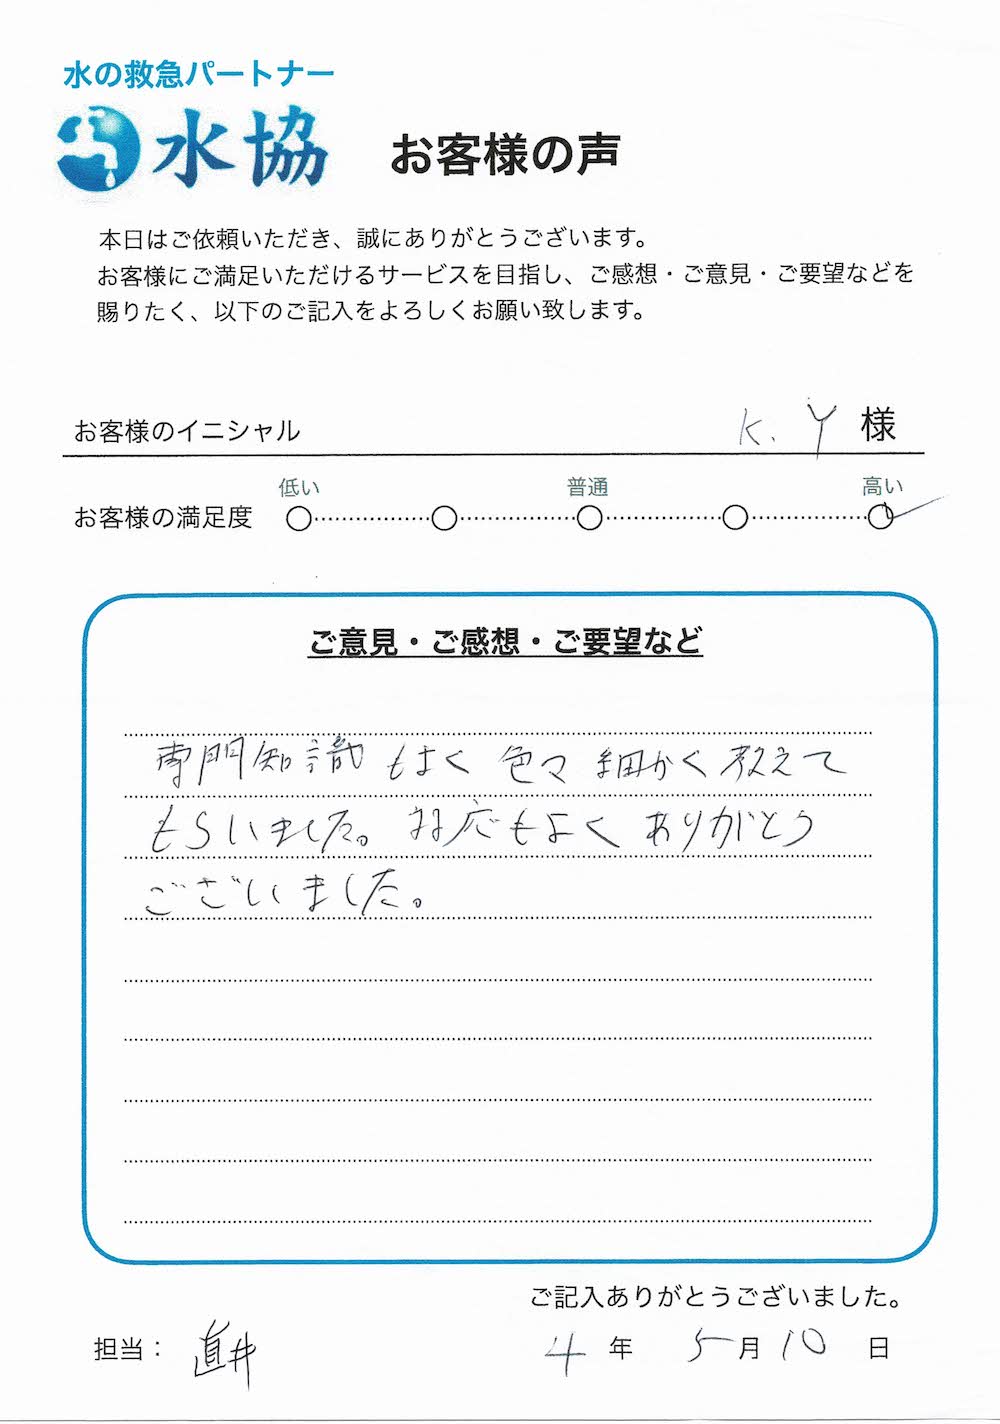 水の救急パートナー
水協
お客様の声
本日はご依頼いただき、誠にありがとうございます。
お客様にご満足いただけるサービスを目指し、ご感想・ご意見・ご要望などを
賜りたく、以下のご記入をよろしくお願い致します。
お客様のイニシャル K. Y 様
低い 普通 高い
お客様の満足度
ご意見・ご感想・ご要望など
専門知識もよく色々細かく教えて
もらいました。対応もよくありがとう
ございました。
ご記入ありがとうございました。
担当： 直井 4 年 5 月 10 日